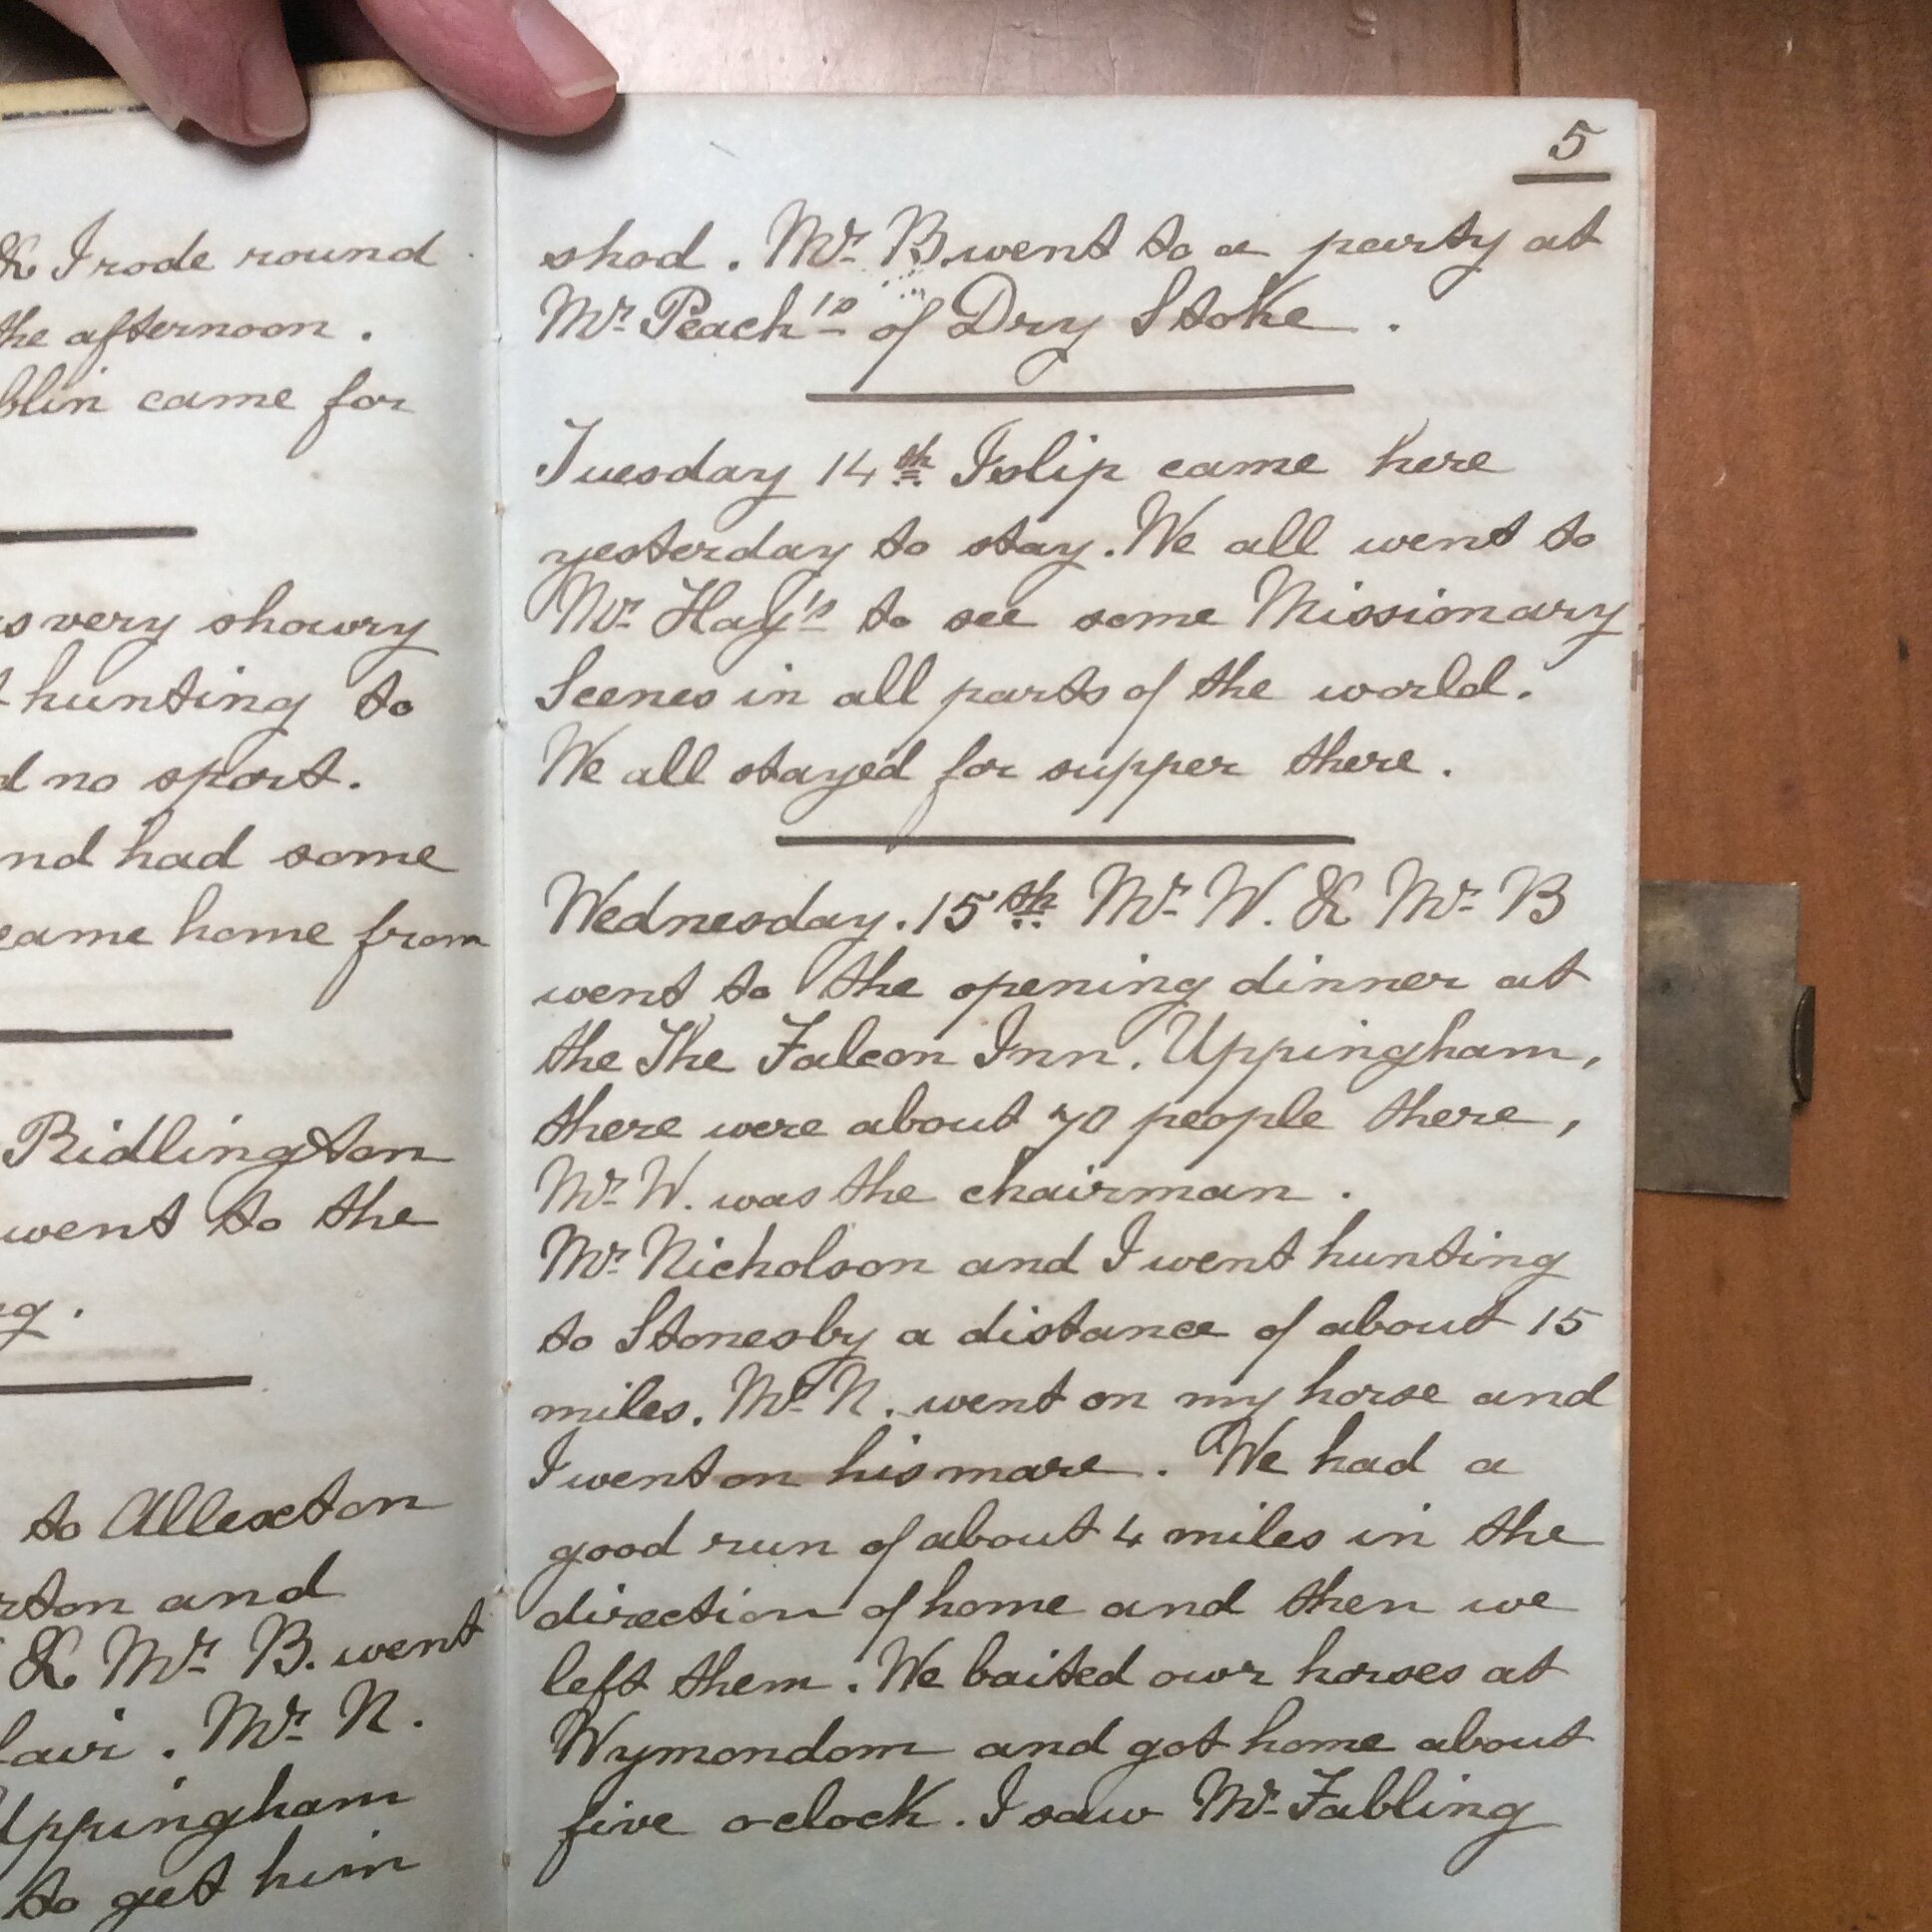 & I rode round
the afternoon.
came for
very showry
hunting to
no sport.
and had some
came home from
Ridlington
went to the
to Allexton
and
& Mr. B. went
Mr. N.
Uppingham
to get him
5
shod. Mr. B. went to a party at
Mr. Peach's of Dry Stoke.
Tuesday 14th Islip came here
yesterday to stay. We all went to
Mr. Hay's to see some Missionary
Scenes in all parts of the world.
We all stayed for supper there.
Wednesday. 15th Mr. W. & Mr. B
went to the opening dinner at
the The Falcon Inn. Uppingham,
there were about 70 people there,
Mr. W. was the chairman.
Mr. Nicholson and I went hunting
to Stonesby a distance of about 15
miles. Mr. N. went on my horse and
I went on his mare. We had a
good run of about 4 miles in the
direction of home and then we
left them. We baited our horses at
Wymondom and got home about
five o-clock. I saw Mr. Fabling